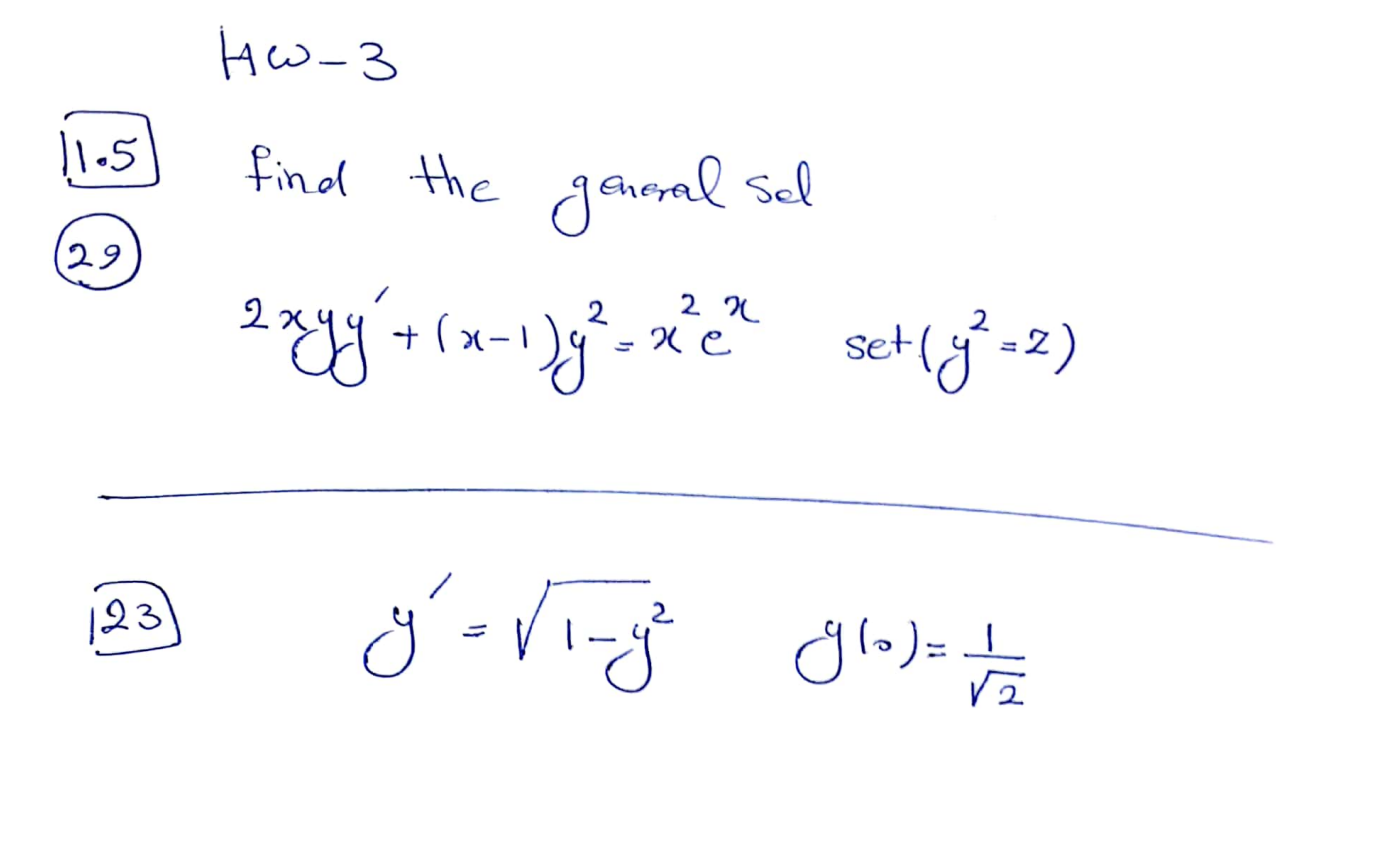 HW-3
11.5 find the general sol
29
2xyy' + (x-1)y² = x²eˣ set(y² = z)
123 y' = √1-y² y(0) = 1/√2